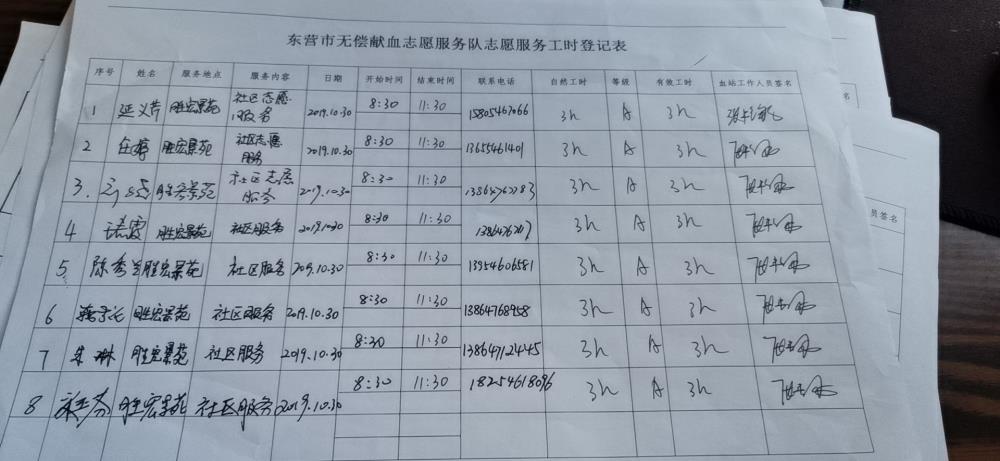 东营市无偿献血志愿服务队志愿服务工时登记表
序号 姓名 服务地点 服务内容 日期 开始时间 结束时间 联系电话 自然工时 等级 有效工时 血站工作人员签名
1 延义芹 胜宏景苑 社区志愿服务 2019.10.30 8:30 11:30 15805467066 3h A 3h
2 胜宏景苑 社区志愿服务 2019.10.30 8:30 11:30 13655461401 3h A 3h
3. 胜宏景苑 社区志愿服务 2019.10.30 8:30 11:30 13864762783 3h A 3h
4 胜宏景苑 社区服务 2019.10.30 8:30 11:30 3h A 3h
5 陈秀兰 胜宏景苑 社区服务 2019.10.30 8:30 11:30 13954606581 3h A 3h
6 胜宏景苑 社区服务 2019.10.30 8:30 11:30 13864768958 3h A 3h
7 朱琳 胜宏景苑 社区服务 2019.10.30 8:30 11:30 3h A 3h
8 胜宏景苑 社区服务 2019.10.30 8:30 11:30 18254618096 3h A 3h
员签名